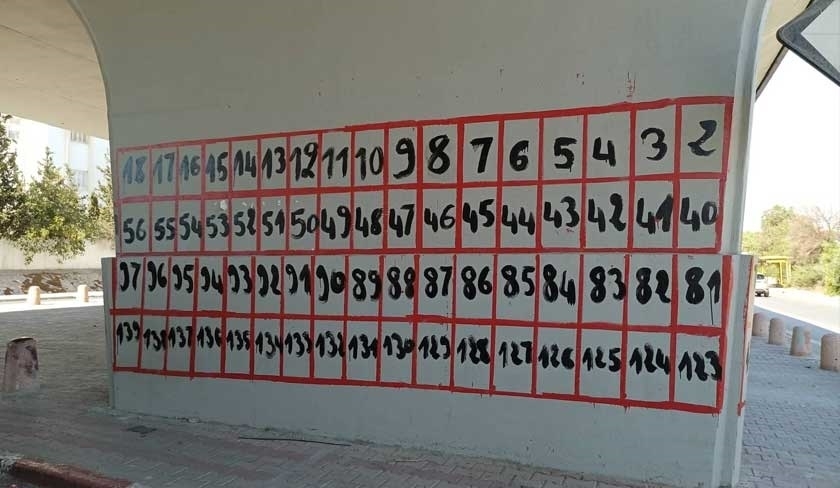 18 17 16 15 14 13 12 11 10 9 8 7 6 5 4 3 2
56 55 54 53 52 51 50 49 48 47 46 45 44 43 42 41 40
97 96 95 94 93 92 91 90 89 88 87 86 85 84 83 82 81
139 138 137 136 135 134 133 132 131 130 129 128 127 126 125 124 123